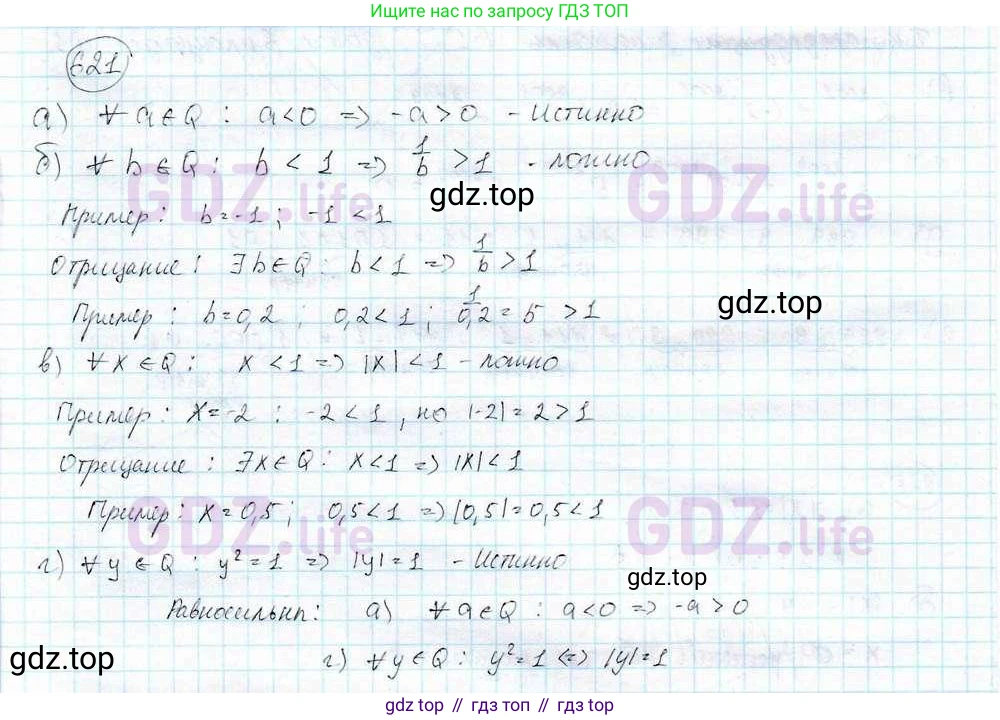 Ищите нас по запросу ГДЗ ТОП
621
а) ∀ a ∈ Q : a < 0 => -a > 0 - Истинно
б) ∀ b ∈ Q : b < 1 => 1/b > 1 - ложно
gdz.top
GDZ.life GDZ.life
Пример : b = -1 ; -1 < 1
Отрицание : ∃ b ∈ Q : b < 1 => 1/b > 1
gdz.top
Пример : b = 0,2 ; 0,2 < 1 ; 1/0,2 = 5 > 1
в) ∀ x ∈ Q : x < 1 => |x| < 1 - ложно
Пример : x = -2 ; -2 < 1 , но |-2| = 2 > 1
Отрицание : ∃ x ∈ Q : x < 1 => |x| < 1
Пример : x = 0,5 ; 0,5 < 1 => |0,5| = 0,5 < 1
GDZ.life GDZ.life
г) ∀ y ∈ Q : y² = 1 => |y| = 1 - Истинно
gdz.top
Равносильны : а) ∀ a ∈ Q : a < 0 => -a > 0
gdz.top
г) ∀ y ∈ Q : y² = 1 <=> |y| = 1
gdz.top // гдз.топ // гдз.top